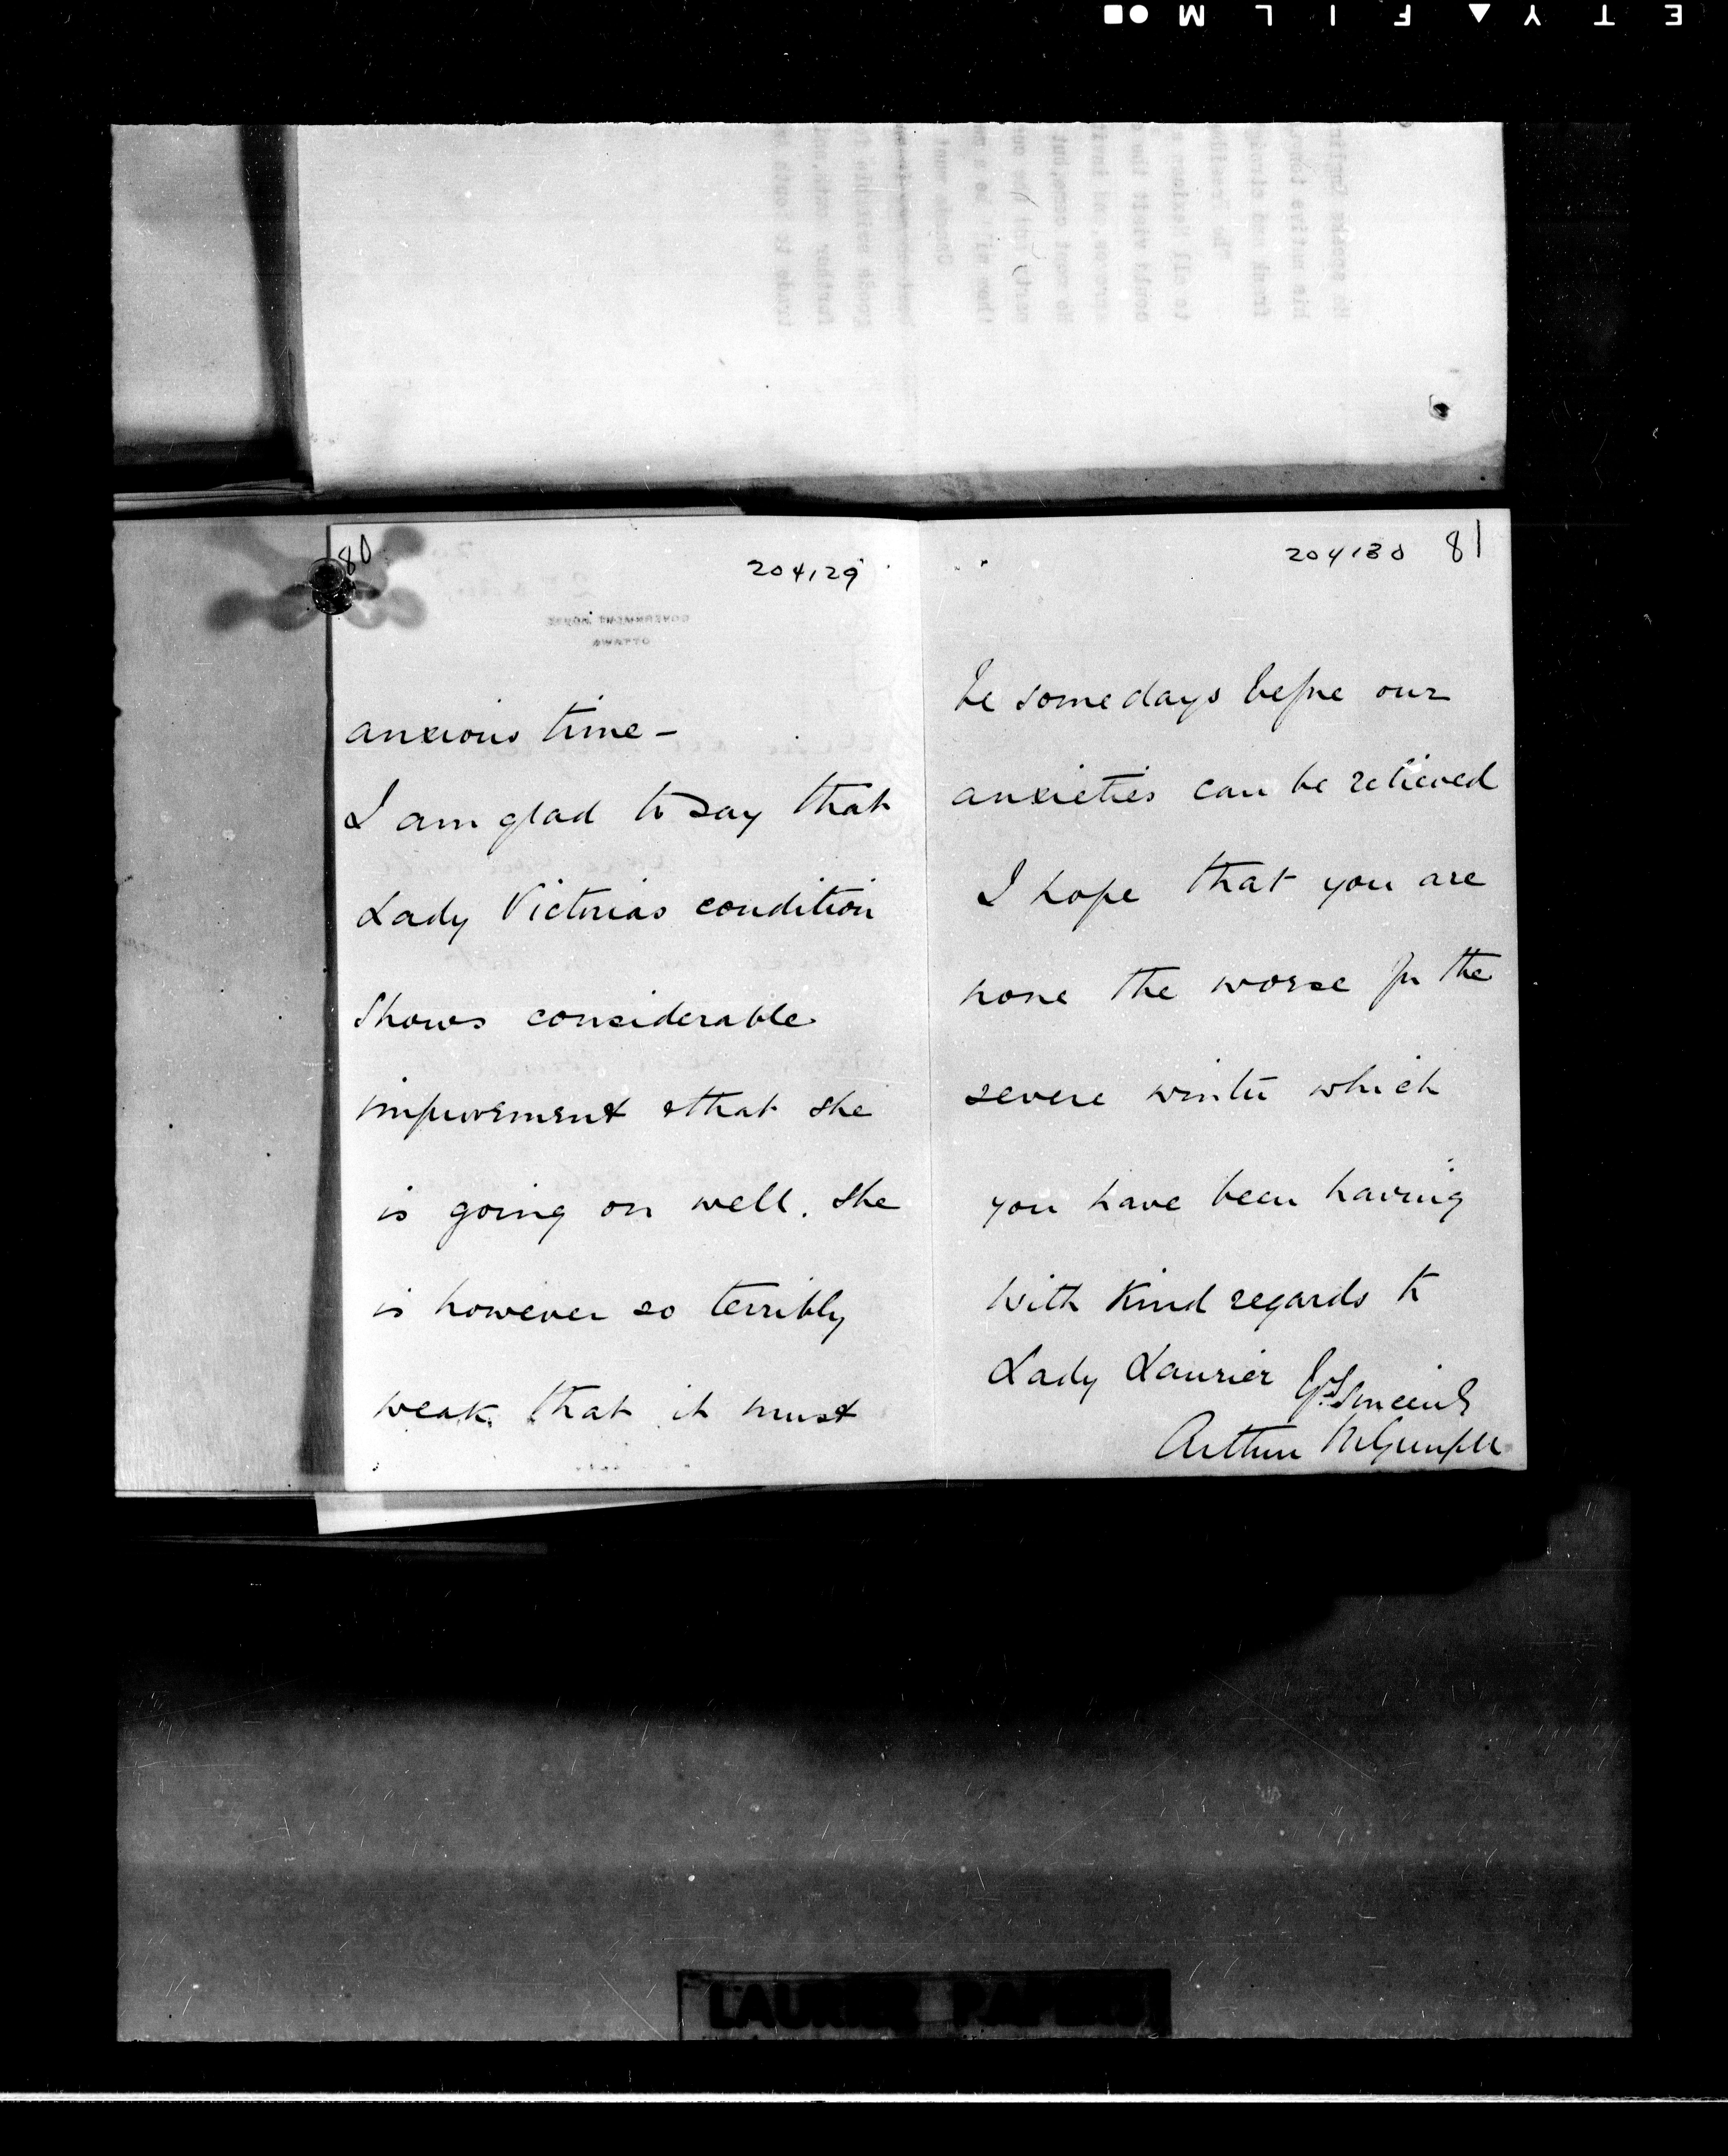 80
204129
GOVERNMENT HOUSE
OTTAWA
anxious time -
I am glad to say that
Lady Victorias condition
shows considerable
improvement & that she
is going on well. She
is however so terribly
weak that it must
204130 81
be some days before our
anxieties can be relieved
I hope that you are
none the worse for the
severe winter which
you have been having
With kind regards to
Lady Laurier Yrs Sincerely
Arthur M Grenfell
LAURIER PAPERS